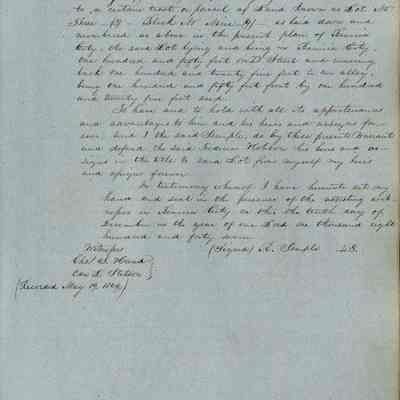 to a certain tract or parcel of Land known as Lot No
Nine (9) Block No Nine (9) as laid down and
numbered as above in the present plan of
City, the said Lot lying and being in City.
One hundred and fifty feet on D Street and running
back one hundred and twenty five feet to an alley,
being one hundred and fifty feet front by one hundred
and twenty five feet deep.
To have and to hold with all its appurtenances
and advantages to him and his heirs and assigns for-
ever. And I the said Semple, do by these presents warrant
and defend the said his heirs and as-
signs in the title to said Lot from myself my heirs
and assigns forever
In testimony whereof I have hereunto set my
hand and seal in the presence of the attesting wit-
nesses in City on this the tenth day of
December in the year of our Lord one thousand eight
hundred and forty seven
Witness (Signed) R. Semple L.S.
Chas. Hand
(Recorded May 19